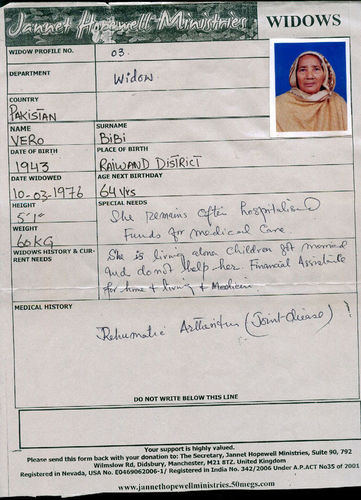 Jannet Hopewell Ministries
WIDOWS
WIDOW PROFILE NO. 03.
DEPARTMENT Widow
COUNTRY
PAKISTAN
NAME SURNAME
VERO BiBi
DATE OF BIRTH PLACE OF BIRTH
1943 RAIWAND DISTRICT
DATE WIDOWED AGE NEXT BIRTHDAY
10-03-1976 64 yrs
HEIGHT SPECIAL NEEDS
5'1" She remains often hospitalised
WEIGHT Funds for medical care
60 KG
WIDOWS HISTORY & CUR-
RENT NEEDS
She is living alone children got married
and do not help her. Financial Assistance
for home & living & Medicine.
MEDICAL HISTORY
(Joint-disease)
DO NOT WRITE BELOW THIS LINE
Your support is highly valued.
Please send this form back with your donation to: The Secretary, Jannet Hopewell Ministries, Suite 90, 792
Wilmslow Rd, Didsbury, Manchester, M21 8TZ. United Kingdom
Registered in Nevada, USA No. E0469062006-1/ Registered in India No. 342/2006 Under A.P.ACT No35 of 2001
www.jannethopewellministries.50megs.com